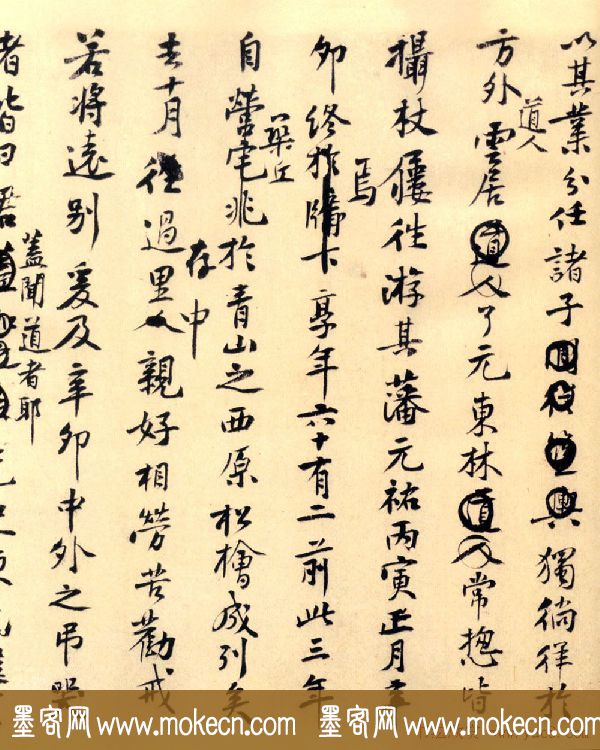 以其業分任諸子
獨徜徉於
道人
方外雲居
了元東林
常揔皆
攝杖屨往游其藩元祐丙寅正月辛
焉
卯終於牖下享年六十有二前此三年
築丘
自營宅兆於青山之西原松檜成列矣
存中
去十月徑過里人親好相勞苦勸戒
若將遠別爰及辛卯中外之弔哭
蓋聞道者耶
者皆曰君
墨客网 www.mokecn.com 墨客网 www.mokecn.com